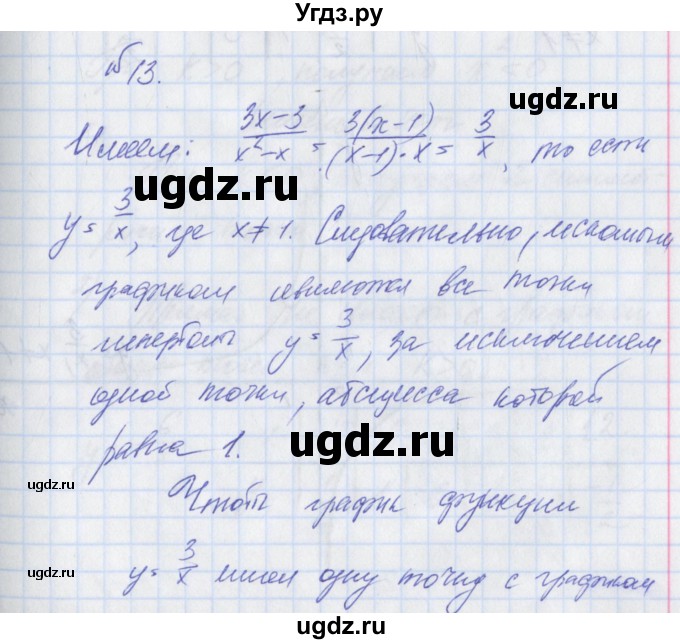 Угдз.ру
№13.
Имеем: (3x-3)/(x²-x) = (3(x-1))/((x-1)·x) = 3/x, то есть
y = 3/x, где x ≠ 1. Следовательно, искомым
графиком являются все точки
гиперболы y = 3/x, за исключением
одной точки, абсцисса которой
равна 1.
Чтобы график функции
y = 3/x имел одну точку с графиком
ugdz.ru
ugdz.ru
ugdz.ru
ugdz.ru
ugdz.ru
ugdz.ru
ugdz.ru
ugdz.ru